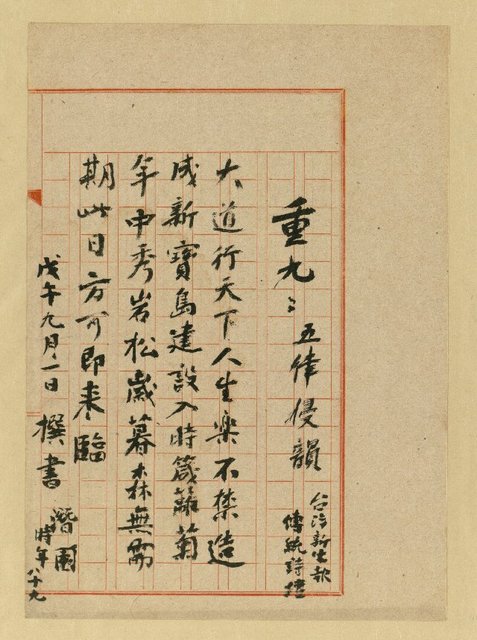 重九：五律侵韻
台湾新生報
傳統詩壇
大道行天下人生樂不禁造
成新寶島建設入時箴籬菊
年中秀岩松歲暮森無需
期此日方可即來臨
戊午九月一日撰書 潛園
時年八十九